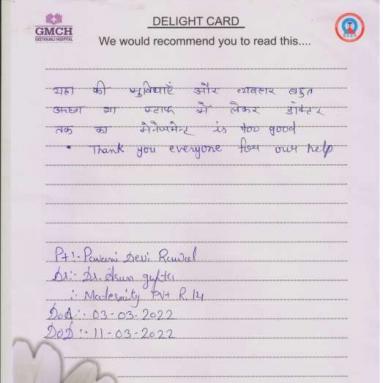 GMCH
GEETANJALI HOSPITAL
DELIGHT CARD
We would recommend you to read this....
यहा की सुविधाएँ और व्यवहार बहुत
अच्छा था स्टाफ से लेकर डॉक्टर
तक का मेनेजमेन्ट is too good
• Thank you everyone for our help
Pt:- Pawani Devi Rawal
Dr:- Dr. Arun gupta
:- Maternity Pvt R.14
DOA:- 03-03-2022
DOD:- 11-03-2022